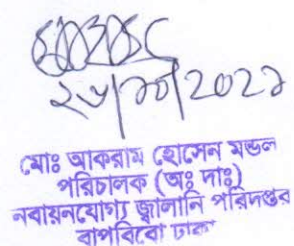 ২৮/১০/2021
মোঃ আকরাম হোসেন মন্ডল
পরিচালক (অঃ দাঃ)
নবায়নযোগ্য জ্বালানি পরিদপ্তর
বাপবিবো ঢাকা